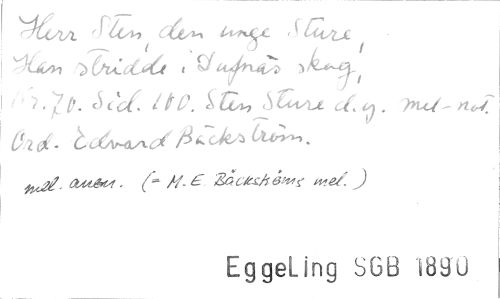 Herr Sten, den unge Sture,
Han stridde i Dufnäs skog,
Nr. 70. Sid. 100. Sten Sture d.y. mel-not.
Ord. Edvard Bäckström.
mel. anon. (= M. E. Bäckströms mel.)
EggeLing SGB 1890